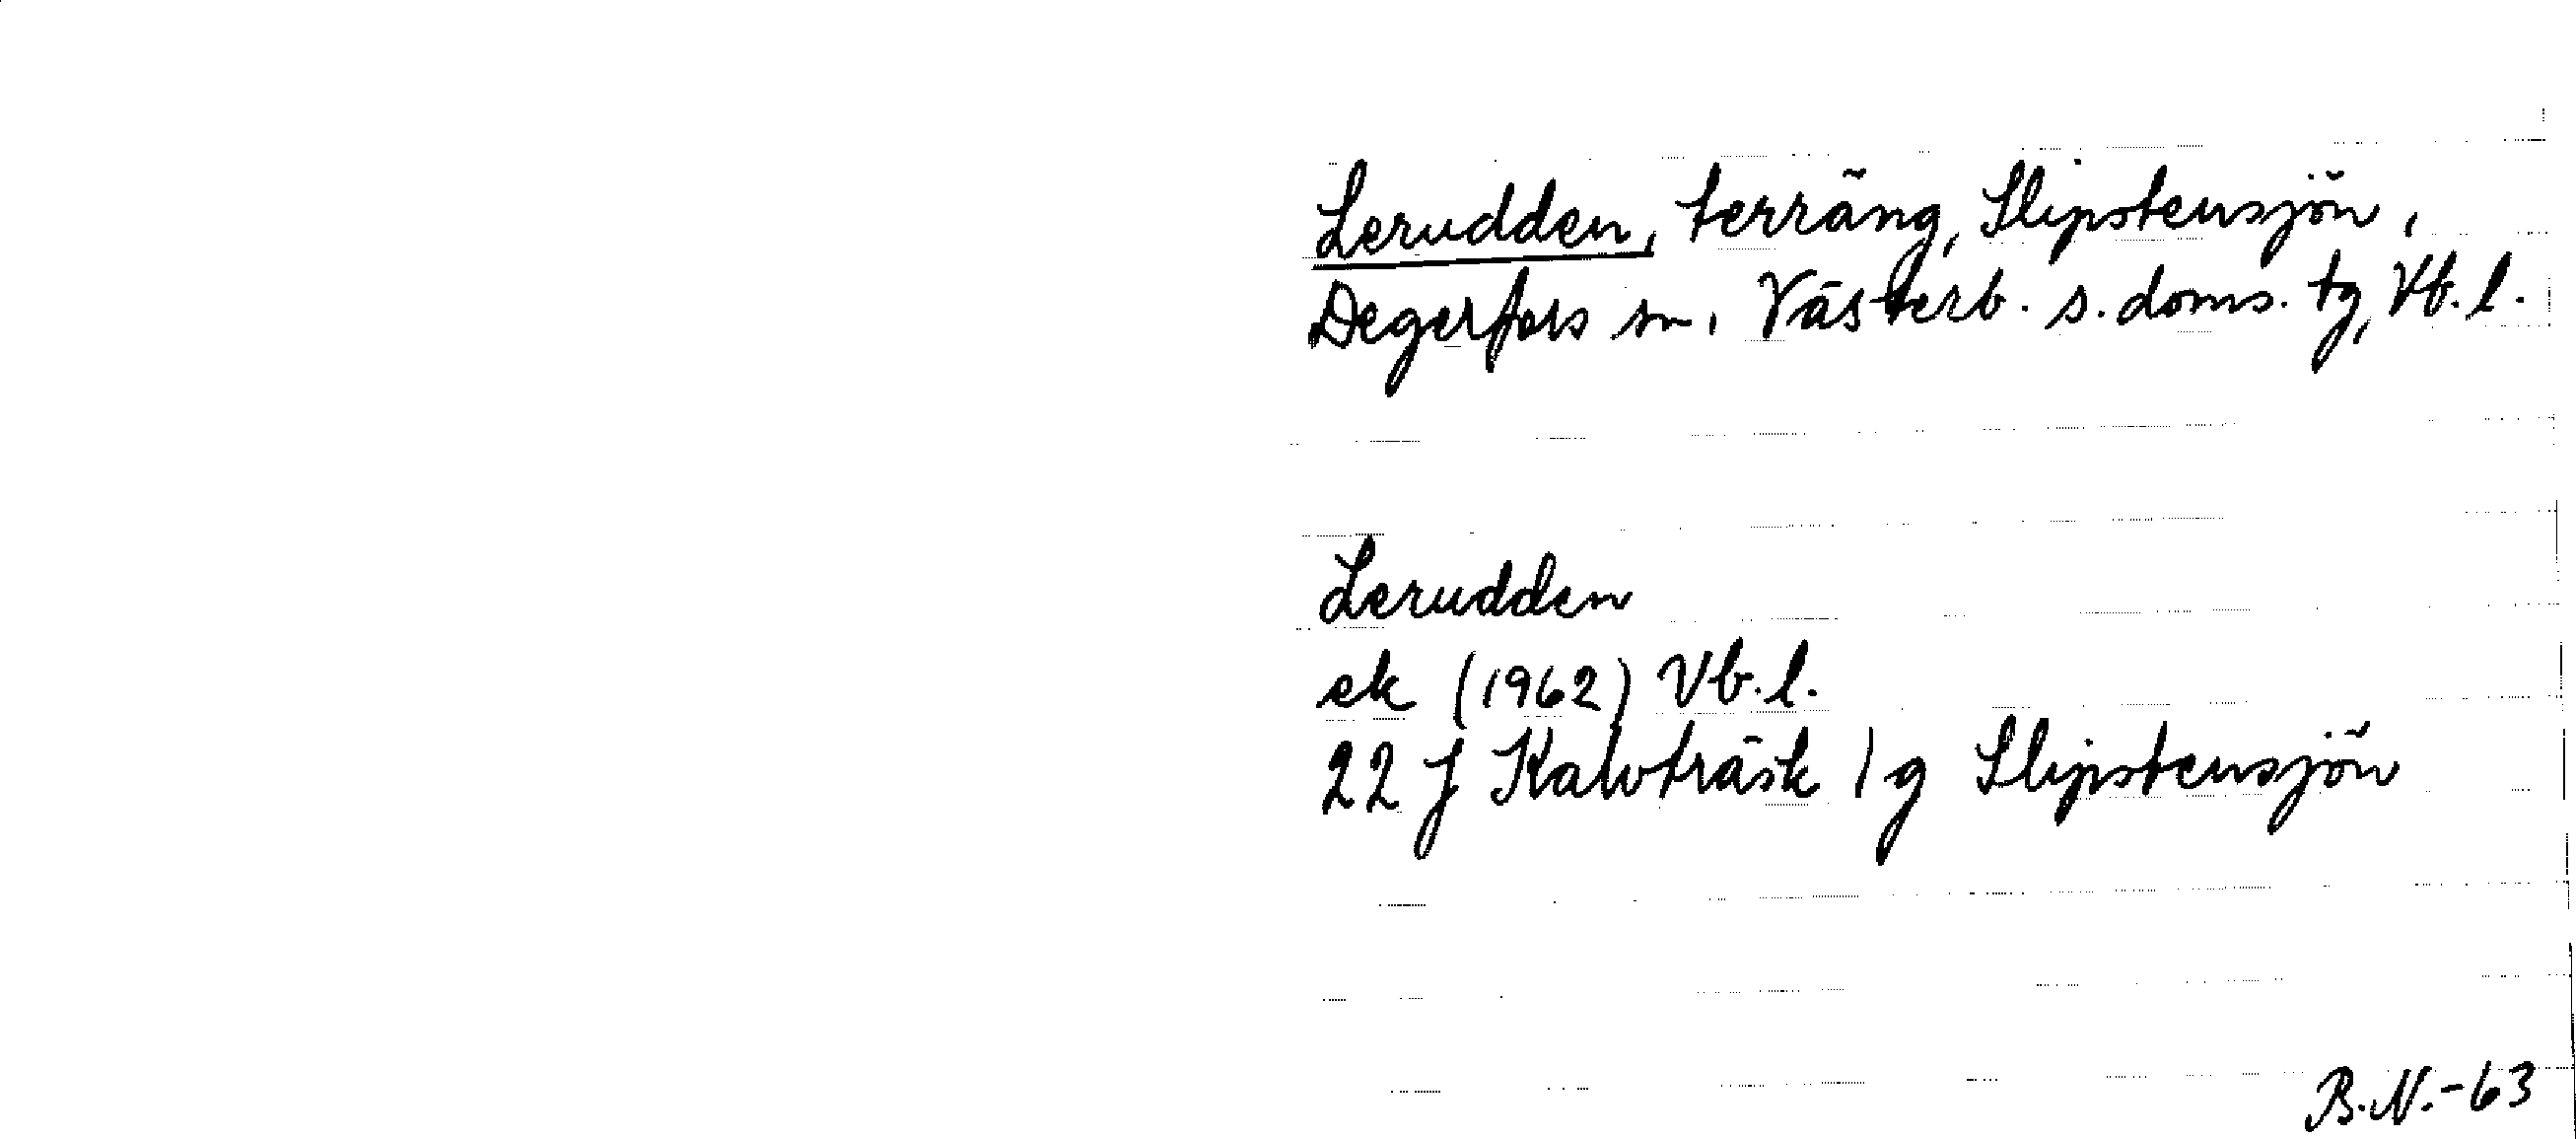 Lerudden, terräng, Slipstensjön,
Degerfors sn, Västerb. s. doms. tg, Vb. l.
Lerudden
ek (1962) Vb. l.
22 J Kalvträsk 1 g Slipstensjön
B.N.-63